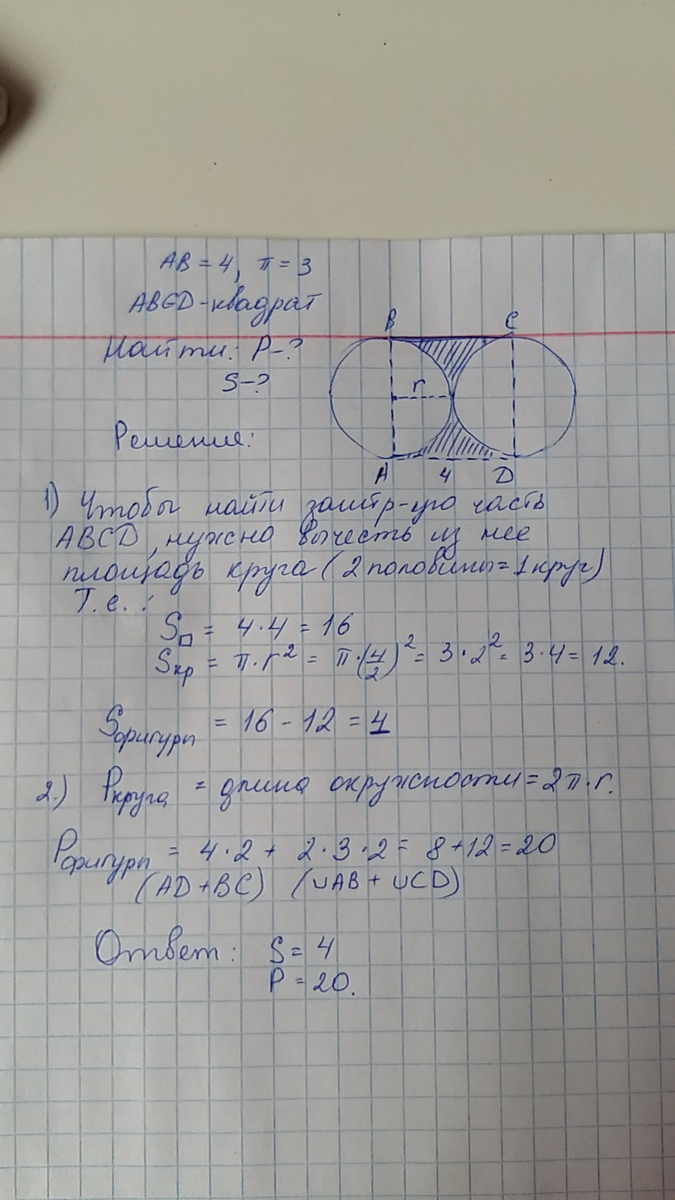 AB = 4, π = 3
ABCD - квадрат
Найти: P - ?
S - ?
B C
r
A 4 D
Решение:
1) Чтобы найти заштр-ую часть
ABCD, нужно вычесть из нее
площадь круга (2 половины = 1 круг)
Т.е.:
S□ = 4·4 = 16
Sкр = π·r² = π·(4/2)² = 3·2² = 3·4 = 12.
Sфигуры = 16 - 12 = 4
2.) Pкруга = длина окружности = 2π·r.
Pфигуры = 4·2 + 2·3·2 = 8 + 12 = 20
(AD + BC) (∪AB + ∪CD)
Ответ: S = 4
P = 20.